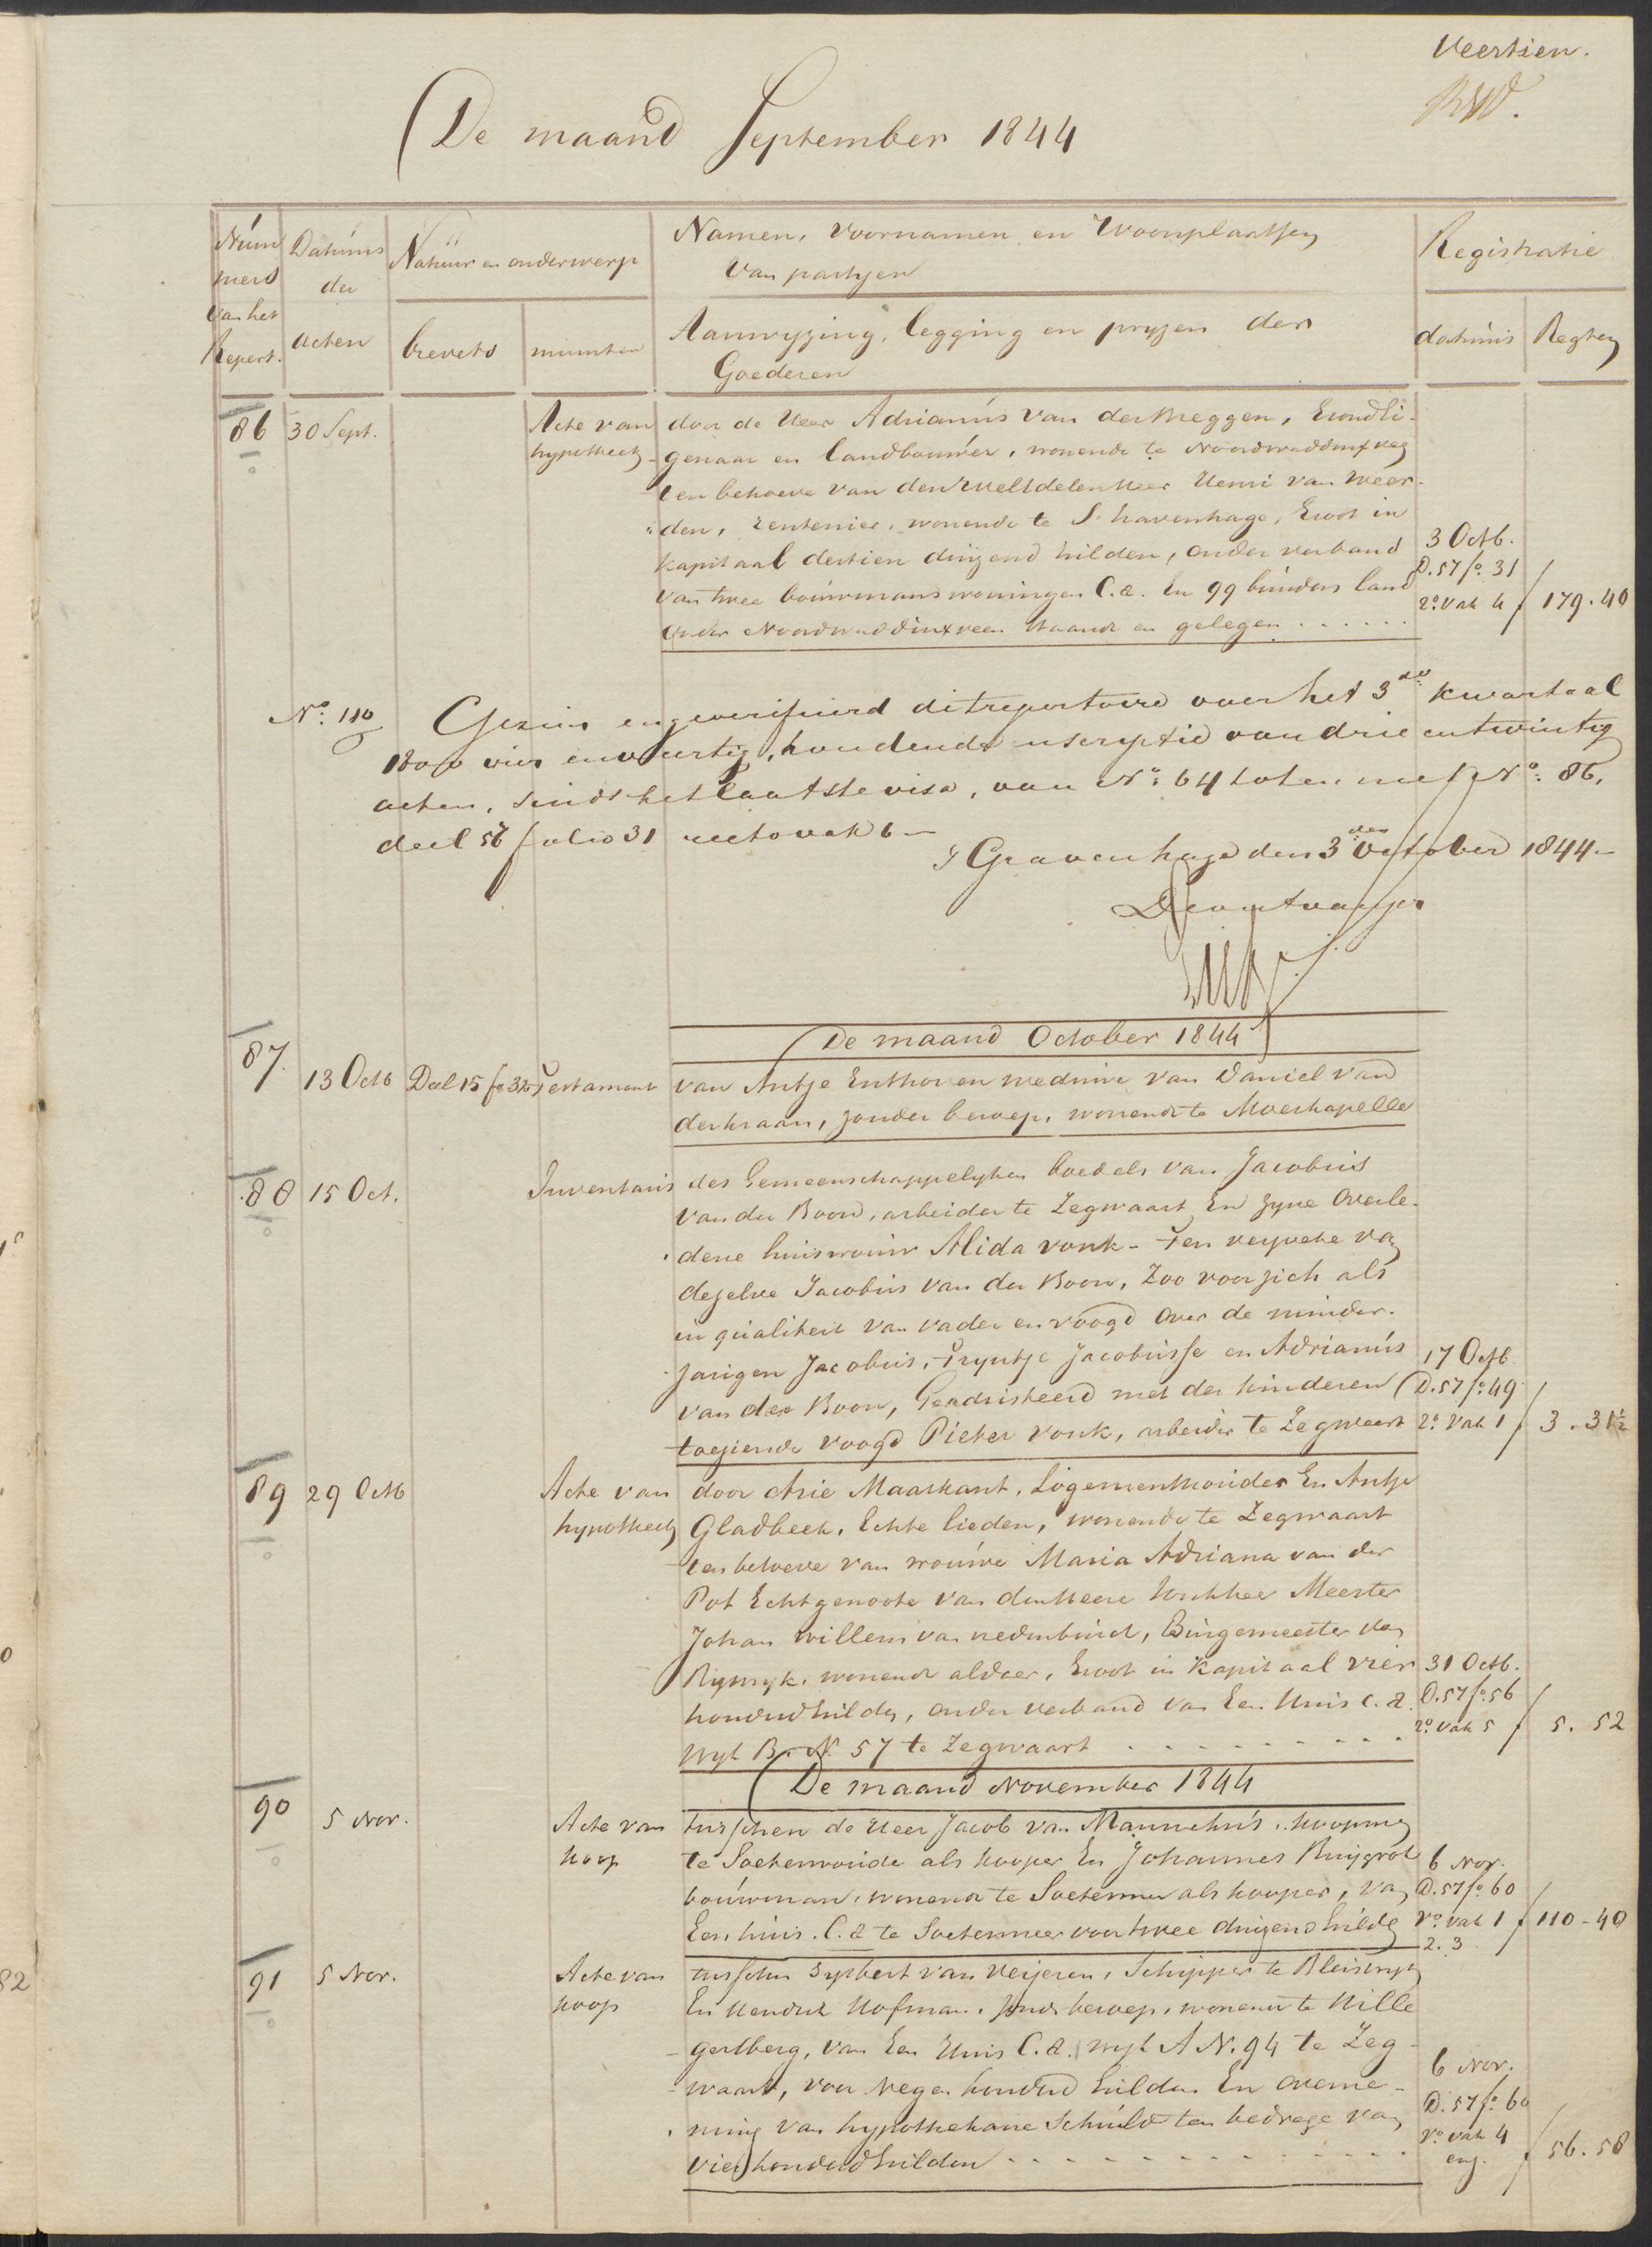 Veertien.
De maand September 1844
Num
mers
van het
Repert.
Datums
der
acten
Natuur en onderwerp
brevets
minuten
Namen, Voornamen en Woonplaatsen
Van partyen
Aanwyzing, legging en pryzen der
Goederen
Registratie
datums
Regten
86 30 Sept. Acte van door de Heer Adrianus van der Breggen, Grondei-
hypotheek genaar en landbouwer, wonende te Noordwaddinxveen
ten behoeve van den WelEdelen Heer Henri van Weer-
den, rentenier, wonende te S. Gravenhage, Groot in
kapitaal dertien duizend Gulden, onder verband 3 Octb.
van twee bouwmanswoningen C.a. En 99 bunders land D. 57 fo. 31
onder Noordwaddinxveen staande en gelegen . . . . . . 2o. vak 4 f 179.40
No. 110 Gezien en geverifieerd dit repertoire over het 3de kwartaal
1800 vier en veertig, houdende inscriptie van drie en twintig
acten, sinds het laatste visa, van No. 64 tot en met No. 86,
deel 57 folio 31 recto vak 6 –
S Gravenhage den 3den October 1844 –
De ontvanger
De maand October 1844
87. 13 Octb Deel 15 fo 32 Testament van Antje Enthoven weduwe van Daniel van
der kraan, zonder beroep, wonende te Moerkapelle
88 15 Oct. Inventaris des Gemeenschappelyken boedels van Jacobus
van der Boon, arbeider te Zegwaart En zyne Overle-
dene huisvrouw Alida vonk – Ten verzoeke van
dezelve Jacobus van der Boon, Zoo voor zich als
in qualiteit van vader en voogd over de minder-
jarigen Jacobus, Tryntje Jacobusse en Adrianus 17 Octb
van der Boon, Geadsisteerd met der kinderen D. 57 fo. 49
toeziende voogd Pieter vonk, arbeider te Zegwaart 2o. vak 1 f 3.31½
89 29 Octb Acte van door Arie Maarkant, Logementhouder En Antje
hypotheek Gladbeek, Echte lieden, wonende te Zegwaart
ten behoeve van vrouwe Maria Adriana van der
Pot Echtgenoote van den Heere Jonkheer Meester
Johan Willem van , Burgemeester van
Ryswyk, wonende aldaar, Groot in kapitaal vier 31 Octb.
honderd Gulden, onder verband van Een Huis c.a. D. 57 fo. 56
Wyk B. N. 57 te Zegwaart . . . . . . . . . 2o. vak 5 f 5.52
De maand November 1844
90 5 Nov. Acte van tusschen de Heer Jacob van Mannekus, koopman
koop te Soeterwoude als kooper En Johannes Ruygrok 6 Nov.
bouwman, wonende te Soetermeer als kooper, van D. 57 fo. 60
Een huis. C.a te Soetermeer voor twee duizend Gulden vo. vak 1 f 110-40
2. 3
91 5 Nov. Acte van tusschen Gysbert van Heijeren, Schipper te Bleiswyk
koop En Hendrik Hofman, zonder beroep, wonende te Hille
gersberg, van Een Huis C.a. wyk A N. 94 te Zeg-
waart, voor Negen honderd Gulden En overne- 6 Nov.
ming van hypothekaire Schuld ten bedrage van D. 57 fo. 60
vier honderd Gulden . . . . . . . . . vo. vak 4 f 56.58
enz.